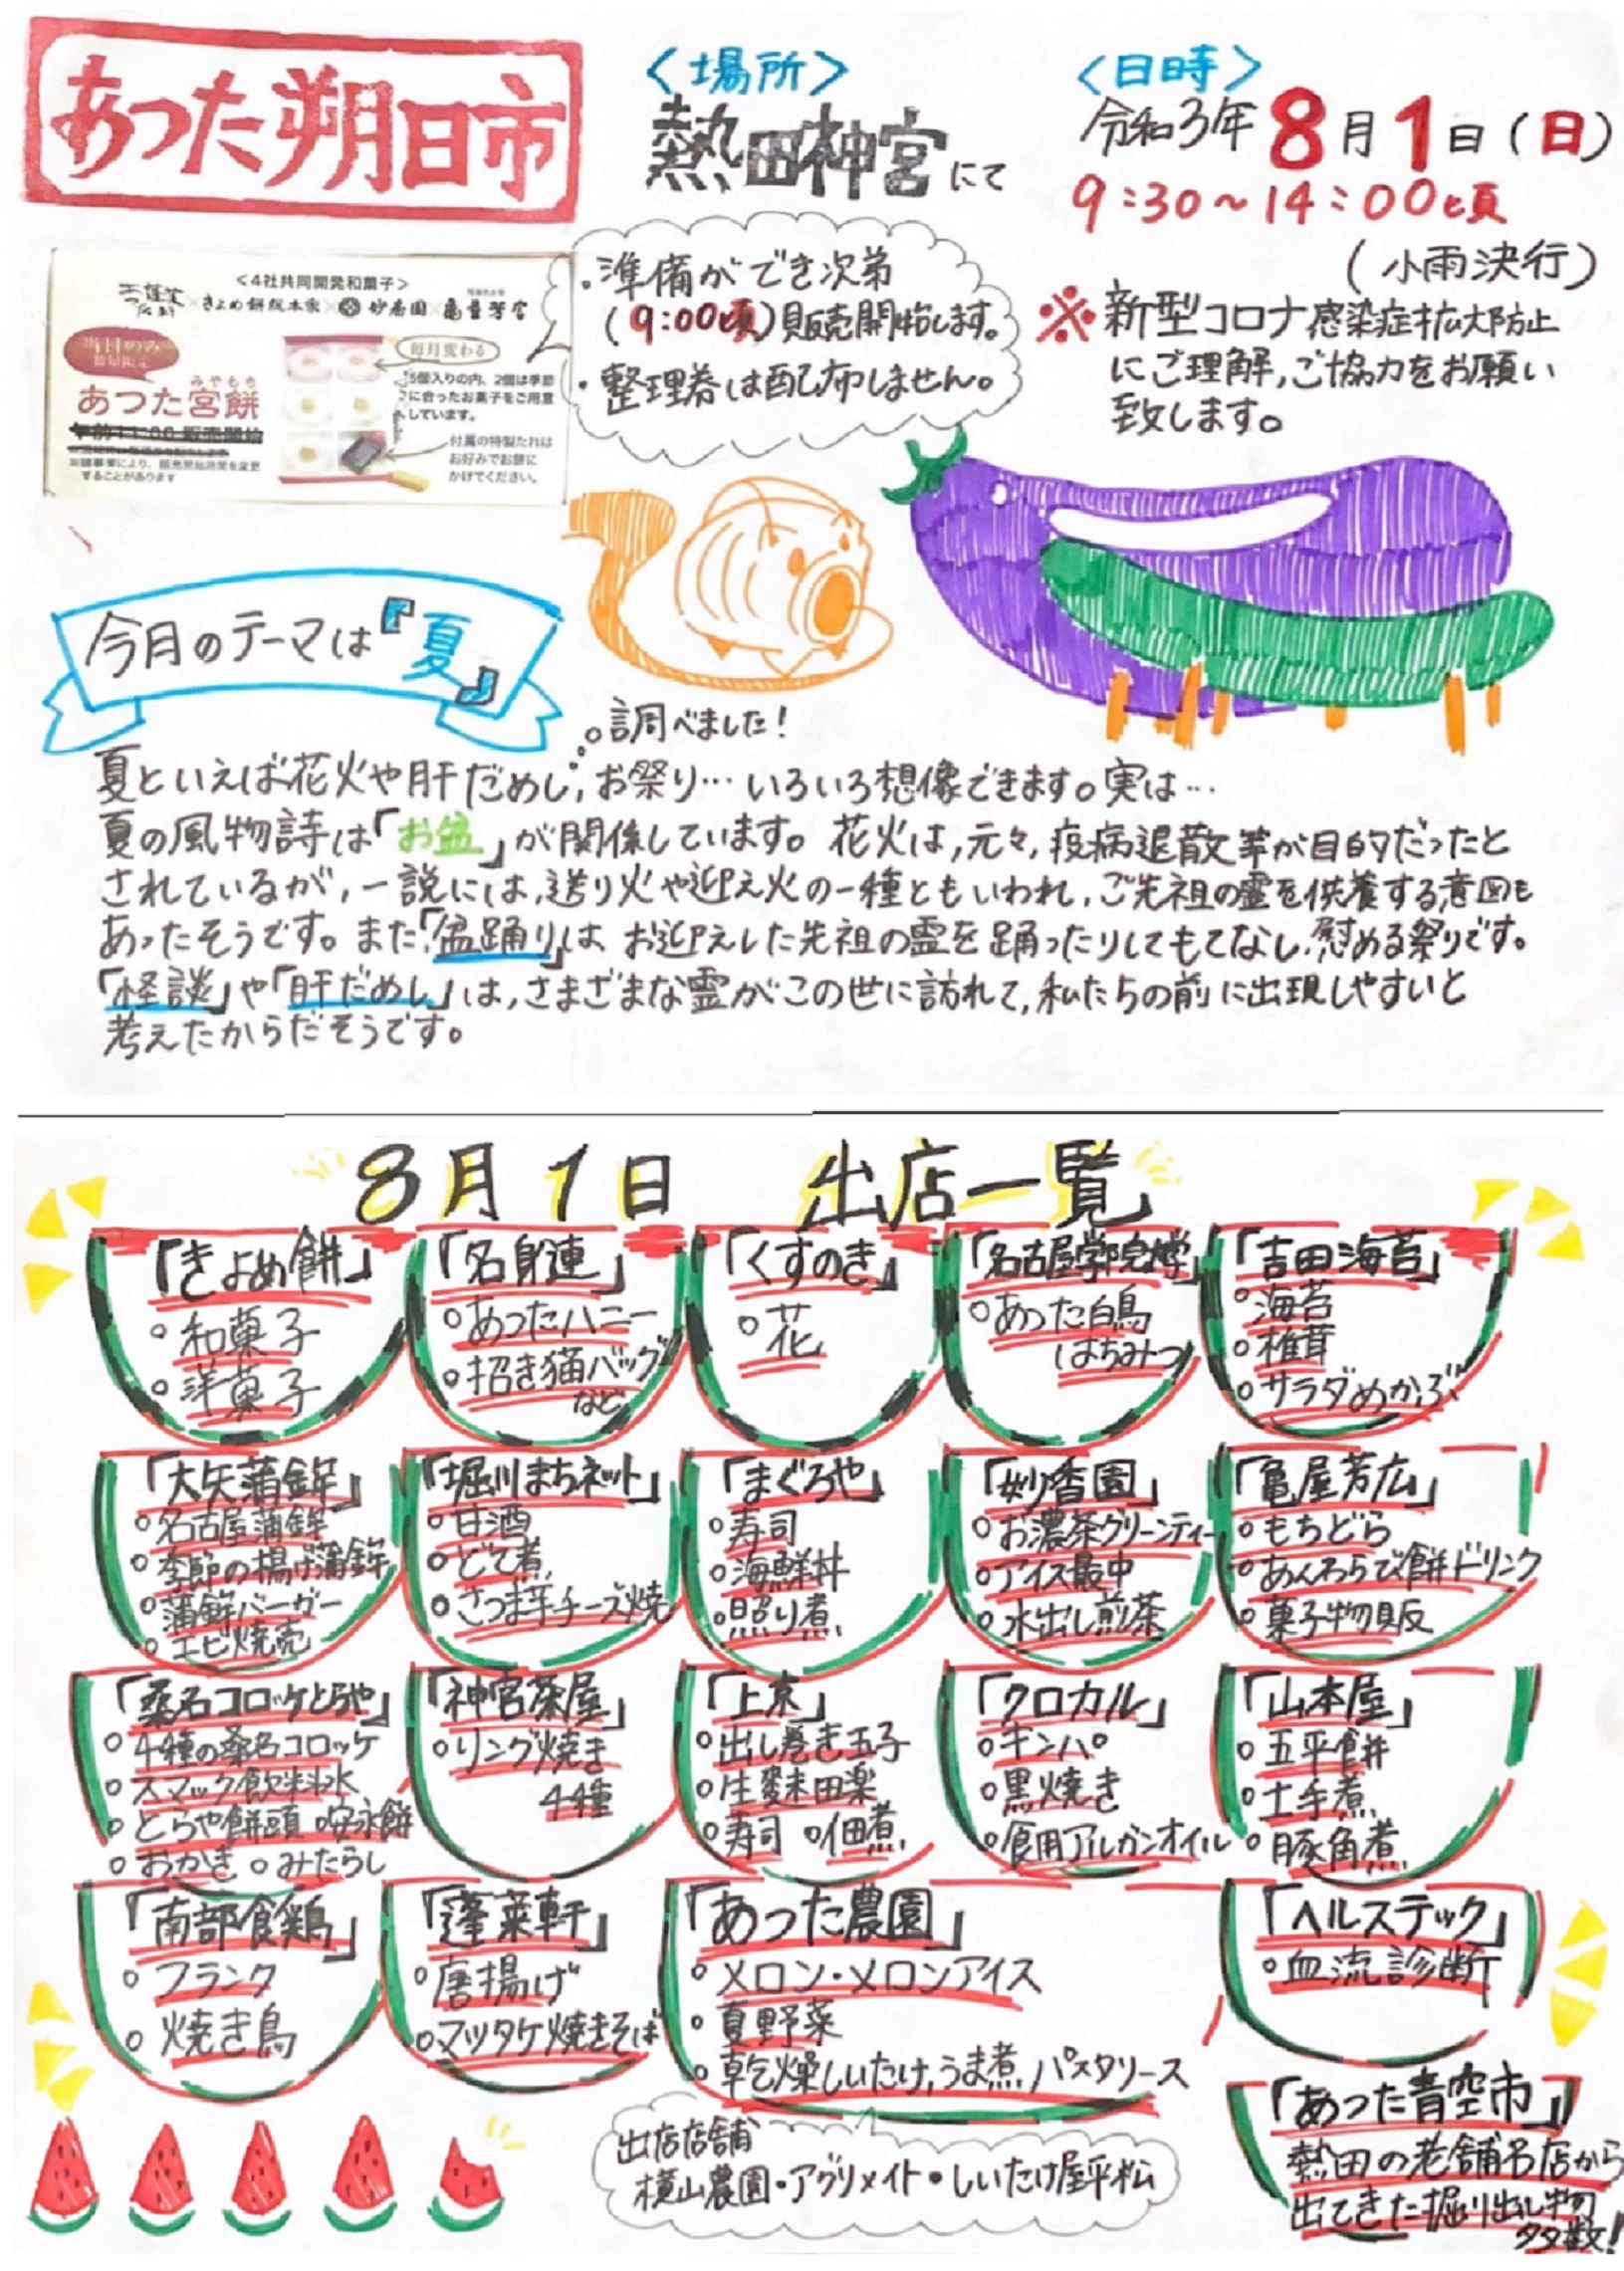 あつた朔日市
〈場所〉
熱田神宮にて
〈日時〉
令和3年 8月1日(日)
9:30~14:00頃
(小雨決行)
※新型コロナ感染症拡大防止
にご理解,ご協力をお願い
致します。
・準備ができ次第
(9:00頃)販売開始します。
・整理券は配布しません。
<4社共同開発和菓子>
×きよめ餅総本家×妙香園×亀屋芳広
当日のみ
数量限定
みやもち
あつた宮餅
午前11:00 販売開始
※諸事情により、販売開始時間を変更
することがあります
毎月変わる
5個入りの内、2個は季節
に合ったお菓子をご用意
しています。
付属の特製たれは
お好みでお餅に
かけてください。
今月のテーマは『夏』
調べました!
夏といえば花火や肝だめし,お祭り…いろいろ想像できます。実は…
夏の風物詩は「お盆」が関係しています。花火は,元々,疫病退散等が目的だったと
されているが,一説には,送り火や迎え火の一種ともいわれ,ご先祖の霊を供養する意図も
あったそうです。また「盆踊り」は,お迎えした先祖の霊を踊ったりしてもてなし,慰める祭りです。
「怪談」や「肝だめし」は,さまざまな霊がこの世に訪れて,私たちの前に出現しやすいと
考えたからだそうです。
8月1日 出店一覧
「きよめ餅」
○和菓子
○洋菓子
「名身連」
○あつたハニー
○招き猫バッグ
など
「くすのき」
○花
「名古屋学院大学」
○あつた白鳥
はちみつ
「吉田海苔」
○海苔
○椎茸
○サラダめかぶ
「大矢蒲鉾」
○名古屋蒲鉾
○季節の揚げ蒲鉾
○蒲鉾バーガー
○エビ焼売
「堀川まちネット」
○甘酒
○どて煮
○さつま芋チーズ焼
「まぐろや」
○寿司
○海鮮丼
○照り煮
「妙香園」
○お濃茶グリーンティー
○アイス最中
○水出し煎茶
「亀屋芳広」
○もちどら
○あんわらび餅ドリンク
○菓子物販
「桑名コロッケとらや」
○4種の桑名コロッケ
○スマック飲料水
○とらや饅頭 ○安永餅
○おかき ○みたらし
「神宮茶屋」
○リング焼き
4種
「上京」
○出し巻き玉子
○生麩田楽
○寿司 ○佃煮
「クロカル」
○キンパ
○黒焼き
○食用アルガンオイル
「山本屋」
○五平餅
○土手煮
○豚角煮
「南部食鶏」
○フランク
○焼き鳥
「蓬莱軒」
○唐揚げ
○マツタケ焼きそば
「あつた農園」
○メロン・メロンアイス
○夏野菜
○乾燥しいたけ,うま煮,パスタソース
出店店舗
横山農園・アグリメイト・しいたけ屋平松
「ヘルステック」
○血流診断
「あつた青空市」
熱田の老舗名店から
出てきた掘り出し物
多数!